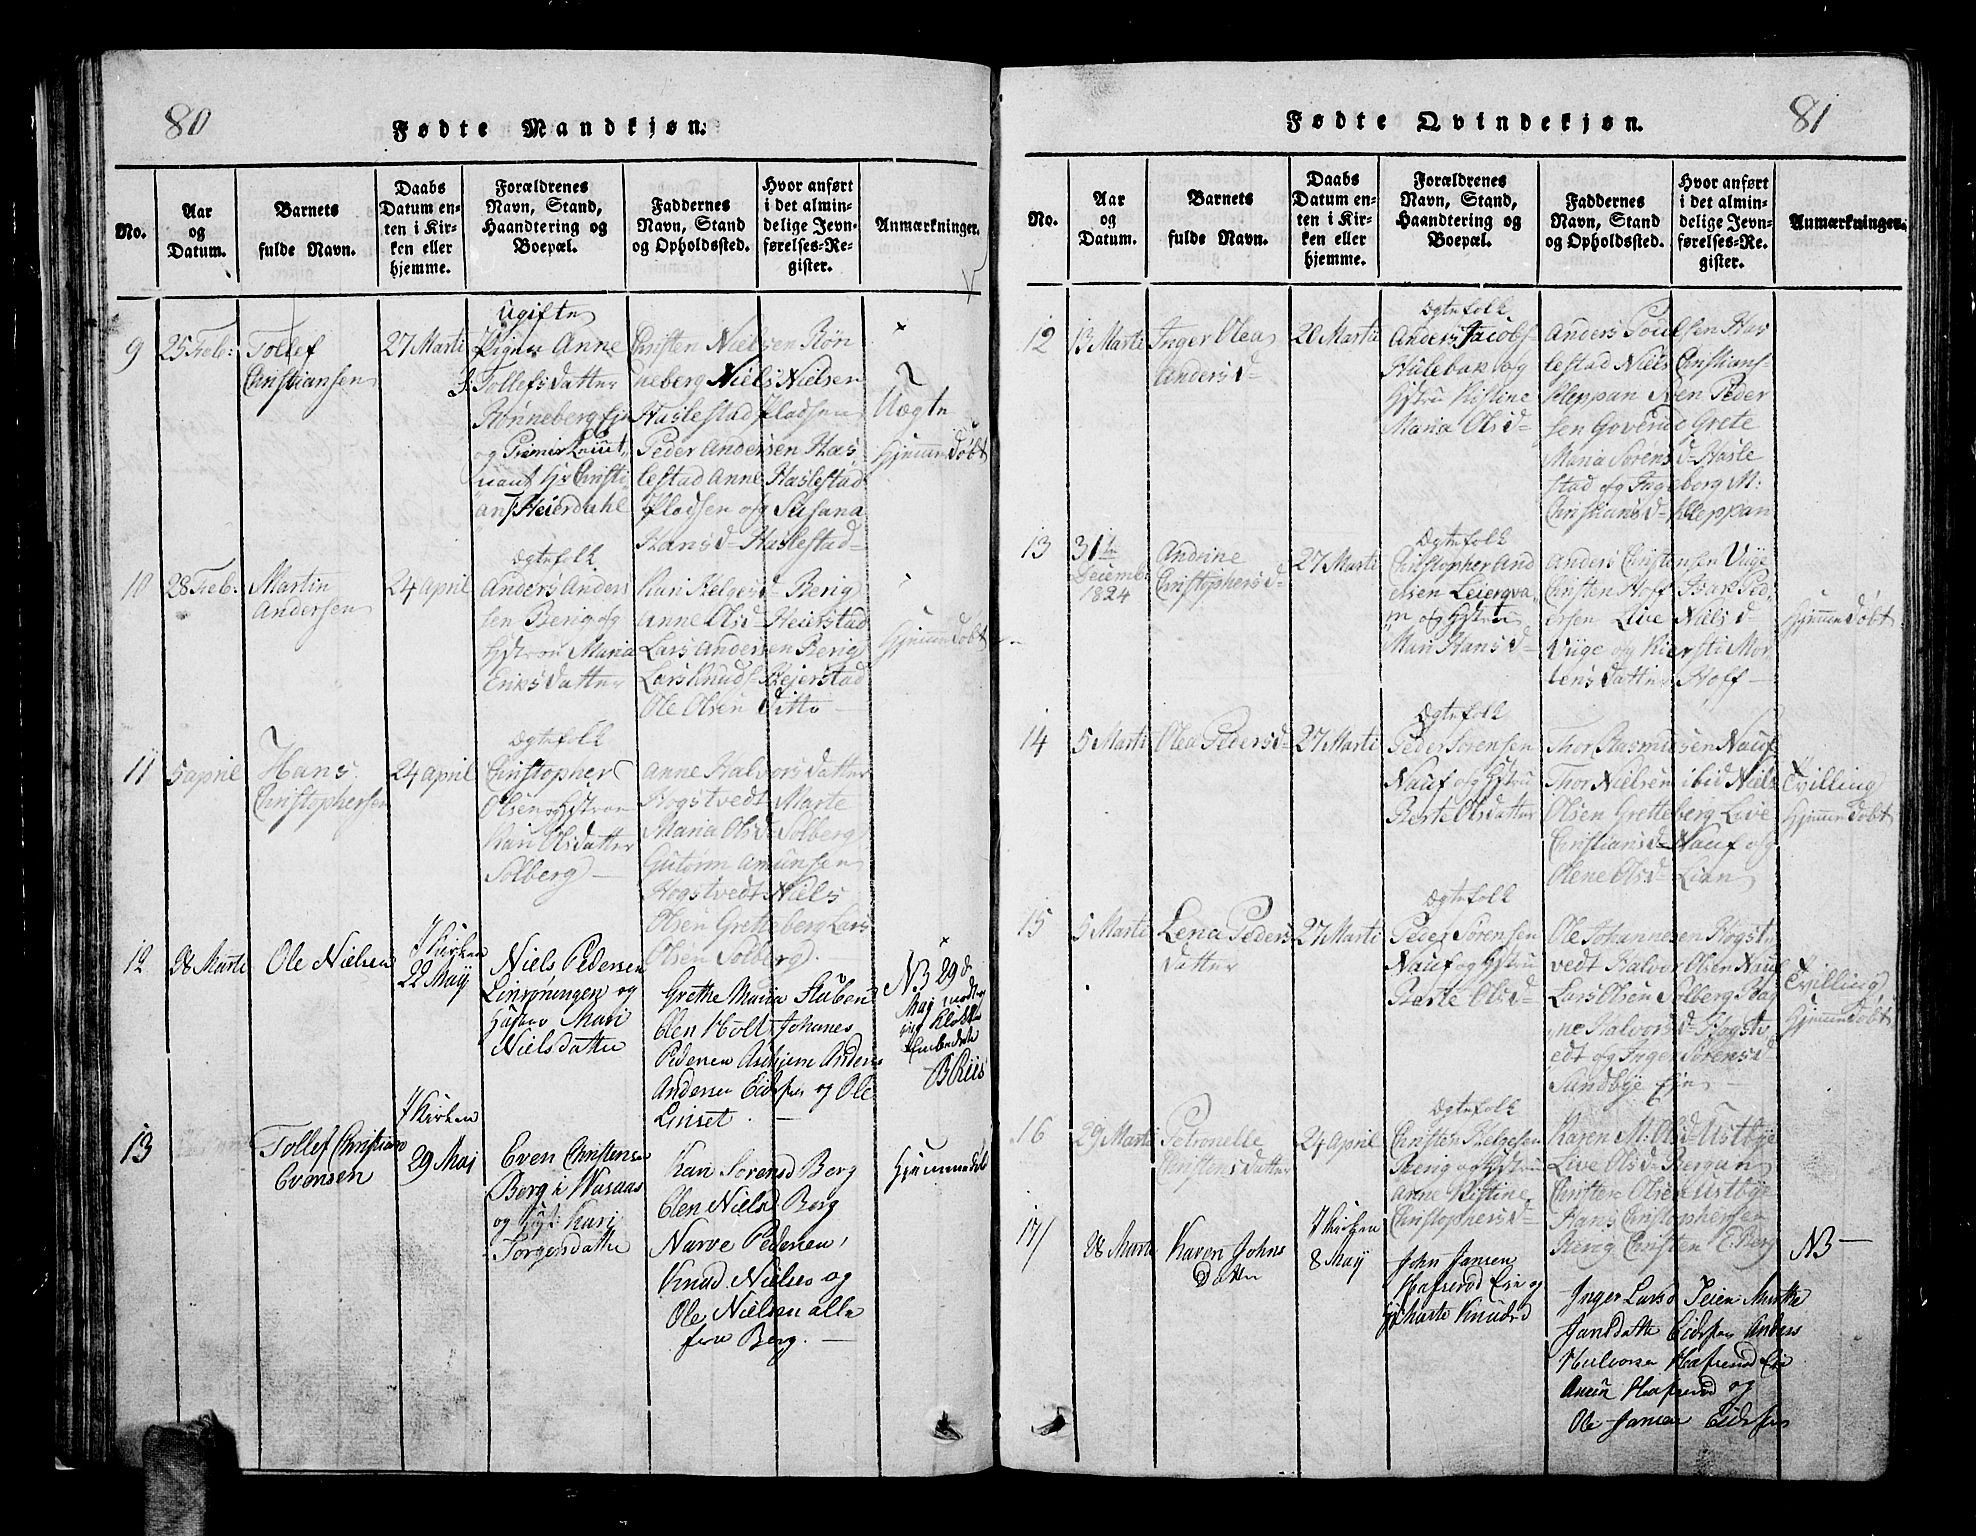 80
Fødte Mandkjøn.
No.
Aar
og
Datum.
Barnets
fulde Navn.
Daabs
Datum en-
ten i Kir-
ken eller
hjemme.
Forældrenes
Navn, Stand,
Haandtering og
Boepæl.
Faddernes
Navn, Stand
og Opholdssted.
Hvor anført
i det almin-
delige Jevn-
førelses-Re-
gister.
Anmærkninger.
9
25 Feb:
Tollef
Christiansen
27 Marti
Ugifte
Pigen Anne
Tollefsdatter
Rønneberg Eje
og Premier Lieut
nant Hr Christi
ans Heierdahl
Christen Nielsen Røn
neberg Niels Nielsen
Haslestad Pladsen
Peder Andersen Has
lestad Anne Haslestad
Pladsen og Susana
Hansd- Haslestad-
Uægte
Hjemmedøbt
10
28 Feb:
Martin
Andersen
24 April
Ægtefolk
Anders Anders
sen Berig og
Hstru Maria
Eriksdatter
Kari Helgesd- Berig
Anne Olsd- Heierstad
Lars Andersen Berig
Lars Knuds- Hejerstad
Ole Olsen Ditto -
Hjemmedøbt
11
5 april
Hans
Christophersen
24 April
Ægtefolk
Christopher
Olsen og Hstru
Kari Olsdatter
Solberg -
Anne Halvorsdatter
Hogstvedt Marte
Maria Olsd- Solberg
Gutorm Amunsen
Hogstvedt Niels
Olsen Gretteberg Lars
Olsen Solberg. -
12
28 Marti
Ole Nielsen
I Kirken
22 Maij
Niels Pedersen
Linrøningen og
Hustro Mari
Nielsdatter
Grethe Maria
Elen Holt Johanes
Pedersen Askjem Anders
Andersen Eidsfos og Ole
Linset. -
NB 29 d
Maij modtog
jeg Klokker
Embedete
B Riis
13
Tollef Christian
Evensen
I Kirken
29 Mai
Even Christensen
Berg i Waraas
og Hust: Kari
Torgersdatter
Kari Sorensd Berg
Elen Nielsd Berg
Narve Pedersen,
Knud Nielsen og
Ole Nielsen alle
fra Berg. -
Hjemmedøbt
81
Fødte Qvindekjøn.
No.
Aar
og
Datum.
Barnets
fulde Navn.
Daabs
Datum en-
ten i Kir-
ken eller
hjemme.
Forældrenes
Navn, Stand,
Haandtering og
Boepæl.
Faddernes
Navn, Stand
og Opholdssted.
Hvor anført
i det almin-
delige Jevn-
førelses-Re-
gister.
Anmærkninger.
12
13 Marti
Inger Olea
Andersd-
20 Marti
Ægtefolk
Anders Jacobs-
Hulebak og
Hstru Kistine
Maria Olsd-
Anders Poulsen Has
lestad Niels Christians-
Kleppan Peder
sen Govende Grete
Maria Sørensd- Hasle
stad og Ingeberg M:
Christiansd- Kleppan
13
31te
Decemb:
1824
Andrine
Christophersd-
27 Marti
Ægtefolk
Christopher And
ersen Leiergva
m og Hstru
Mari Hansd-
Anders Christensen Viige
Christen Hoff Isak Ped
ersen Live Nielsd-
Viige og Kiersti Mor
tensdatter Hoff -
Hjemmedøbt
14
5 Marti
Olea Pedersd-
27 Marti
Ægtefolk
Peder Sørensen
Nauf og Hstru
Berte Olsdatter
Thor Rasmusen Nauf
Thor Nielsen ibid Niels
Olsen Gretteberg Live
Christiansd- Nauf og
Olene Olsd- Lian
Tvilling
Hjemmedøbt
15
5 Marti
Lena Peders
datter
27 Marti
Ægtefolk
Peder Sørensen
Nauf og Hstru
Berte Olsd-
Ole Johannesen Hogst
vedt Halvor Olsen Nauf
Lars Olsen Solberg Dag
ne Halvorsd- Hogstv
edt og Inger Sørensd
Sandbye Eje -
Tvilling
Hjemmedøbt
16
29 Marti
Petronelle
Christensdatter
24 April
Ægtefolk
Christen Helgesen
Berig og Hstru
Anne Kistine
Christophersd-
Karen M: Olsd Ustbye
Live Olsd- Bergan
Christen Olsen Ustbye
Hans Christophersen
Berig Christen E. Berg
17
28 Marti
Karen Johns
Datter
I Kirken
8 Maij
John Jansen
Hafsrød Eie og
H: Marte Knudsd
Inger Larsd Teien Marthe
Jansdatter Eidsfos Anders
Halvorsen Hafsrød Eie
Hafsrød og
Ole Jansen Eidsfos
NB -